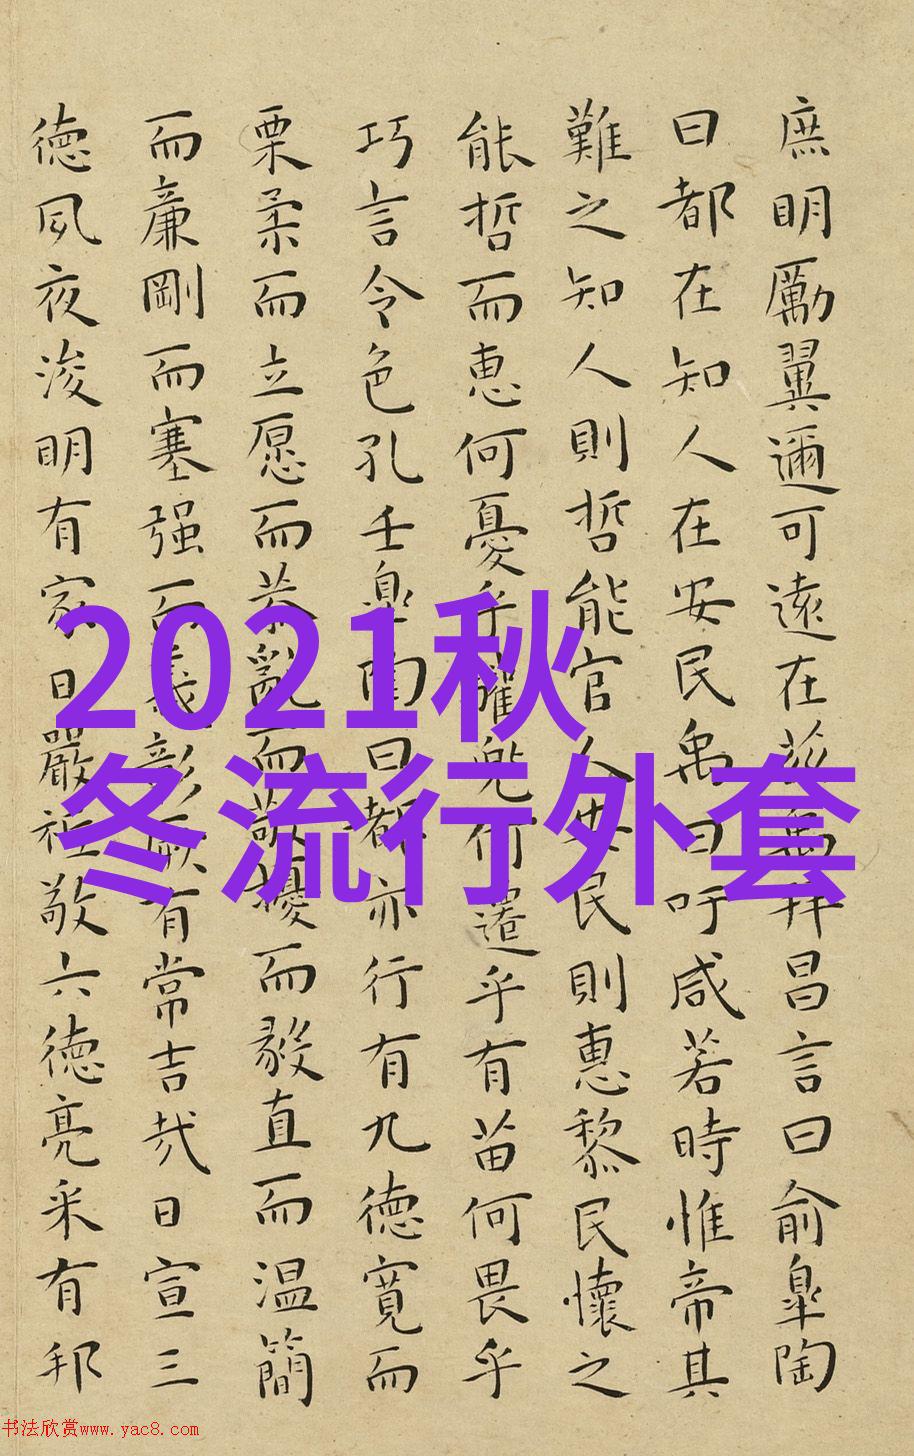 庶明勵翼邇可遠在茲禹拜昌言曰俞皐陶
曰都在知人在安民禹曰吁咸若時惟帝其
難之知人則哲能官人安民則惠黎民懷之
能哲而惠何憂乎驩兜何遷乎有苗何畏乎
巧言令色孔壬皐陶曰都亦行有九德寬而
栗柔而立愿而恭亂而敬擾而毅直而温簡
而廉剛而塞强而義彰厥有常吉哉日宣三
德夙夜浚明有家日嚴祗敬六德亮采有邦
2021秋
冬流行外套
书法欣赏www.yac8.com